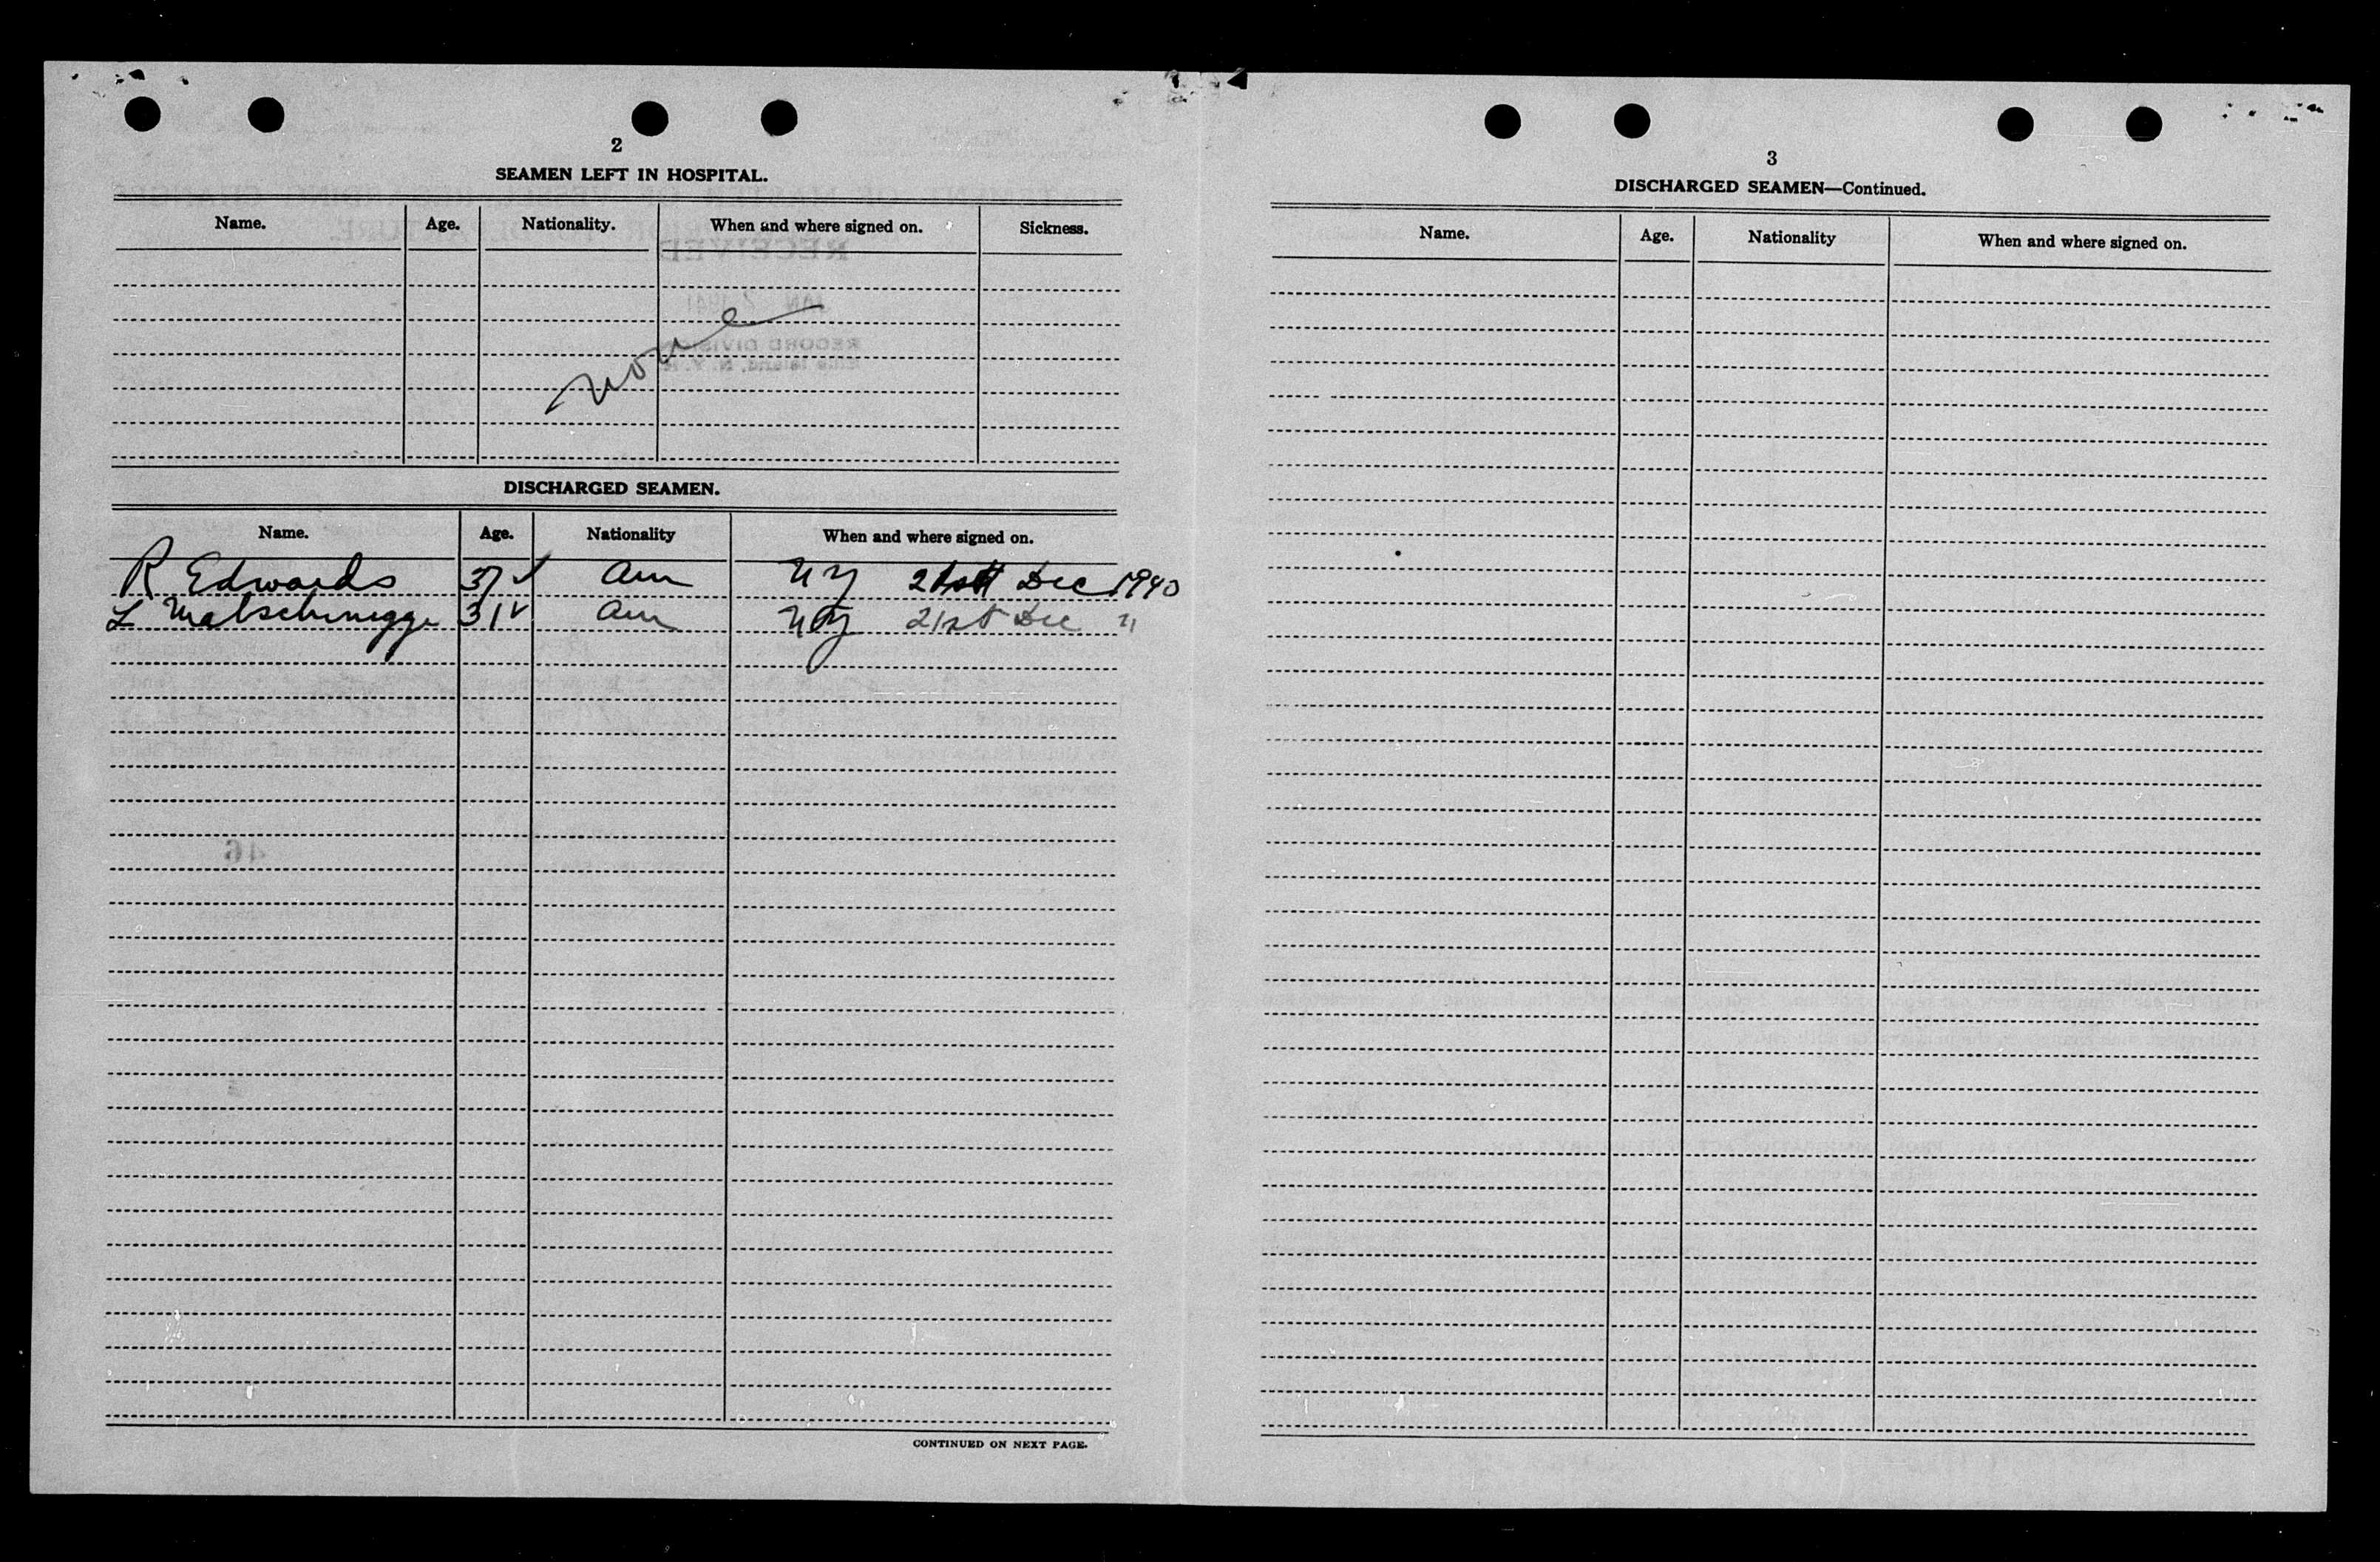 2
SEAMEN LEFT IN HOSPITAL.
Name. Age. Nationality. When and where signed on. Sickness.
None
DISCHARGED SEAMEN.
Name. Age. Nationality When and where signed on.
R Edwards 37 ✓ Am NY 21st Dec 1940
L 31 ✓ Am NY 21st Dec "
CONTINUED ON NEXT PAGE.
3
DISCHARGED SEAMEN—Continued.
Name. Age. Nationality When and where signed on.